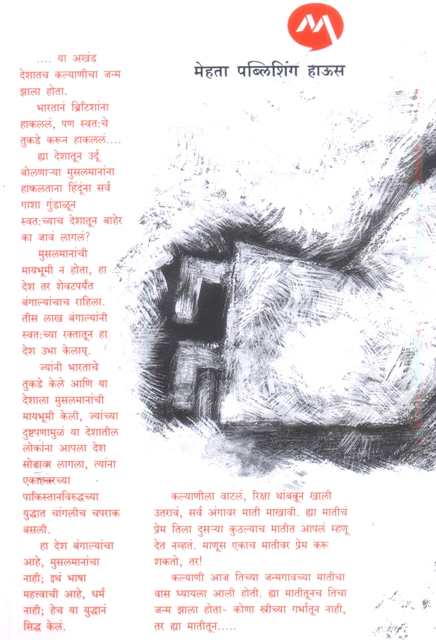 मेहता पब्लिशिंग हाऊस
.... या अखंड
देशातच कल्याणीचा जन्म
झाला होता.
भारतानं ब्रिटिशांना
हाकललं, पण स्वत:चे
तुकडे करून हाकललं....
ह्या देशातून उर्दू
बोलणाऱ्या मुसलमानांना
हाकलताना हिंदूंना सर्व
गाशा गुंडाळून
स्वत:च्याच देशातून बाहेर
का जावं लागलं?
मुसलमानांची
मायभूमी न होता, हा
देश तर शेवटपर्यंत
बंगाल्यांचाच राहिला.
तीस लाख बंगाल्यांनी
स्वत:च्या रक्तातून हा
देश उभा केलाय्.
ज्यांनी भारताचे
तुकडे केले आणि या
देशाला मुसलमानांची
मायभूमी केली, ज्यांच्या
दुष्टपणामुळं या देशातील
लोकांना आपला देश
सोडावा लागला, त्यांना
एकाहत्तरच्या
पाकिस्तानविरुद्धच्या
युद्धात चांगलीच चपराक
बसली.
हा देश बंगाल्यांचा
आहे, मुसलमानांचा
नाही; इथं भाषा
महत्त्वाची आहे, धर्म
नाही; हेच या युद्धानं
सिद्ध केलं.
कल्याणीला वाटलं, रिक्षा थांबवून खाली
उतरावं, सर्व अंगावर माती माखावी. ह्या मातीचं
प्रेम तिला दुसऱ्या कुठल्याच मातीत आपलं म्हणू
देत नव्हतं. माणूस एकाच मातीवर प्रेम करू
शकतो, तर!
कल्याणी आज तिच्या जन्मगावच्या मातीचा
वास घ्यायला आली होती. ह्या मातीतूनच तिचा
जन्म झाला होता- कोणा स्त्रीच्या गर्भातून नाही,
तर ह्या मातीतून.....